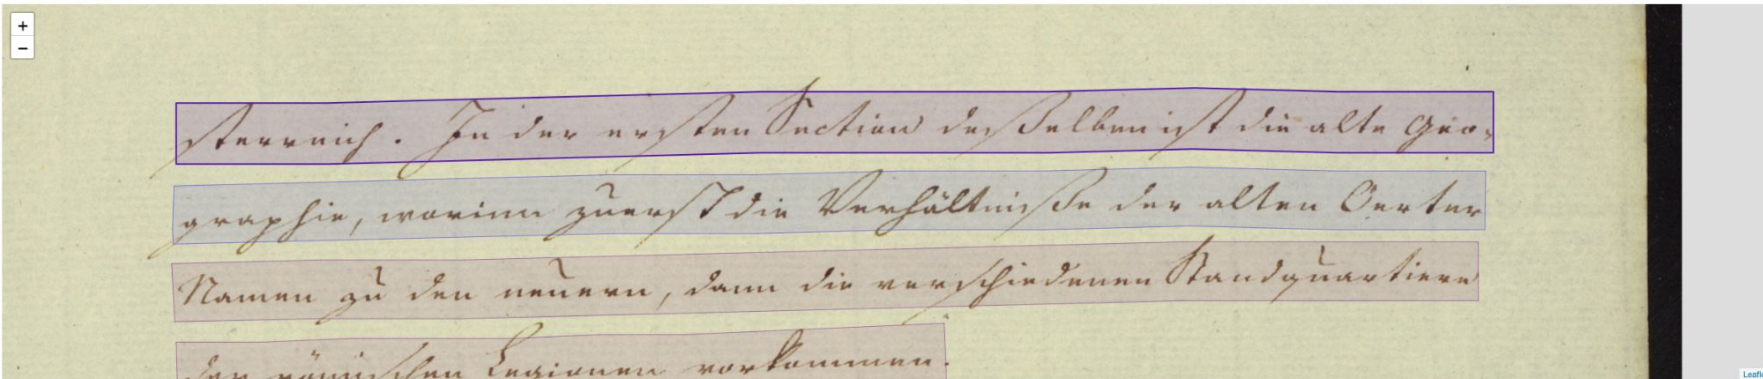 +
−
sterreich. In der ersten Section desselben ist die alte Geo-
graphie, worinn zuerst die Verhältniße der alten Oerter
Namen zu den neuern, dann die verschiedenen Standquartiere
der römischen Legionen vorkommen.